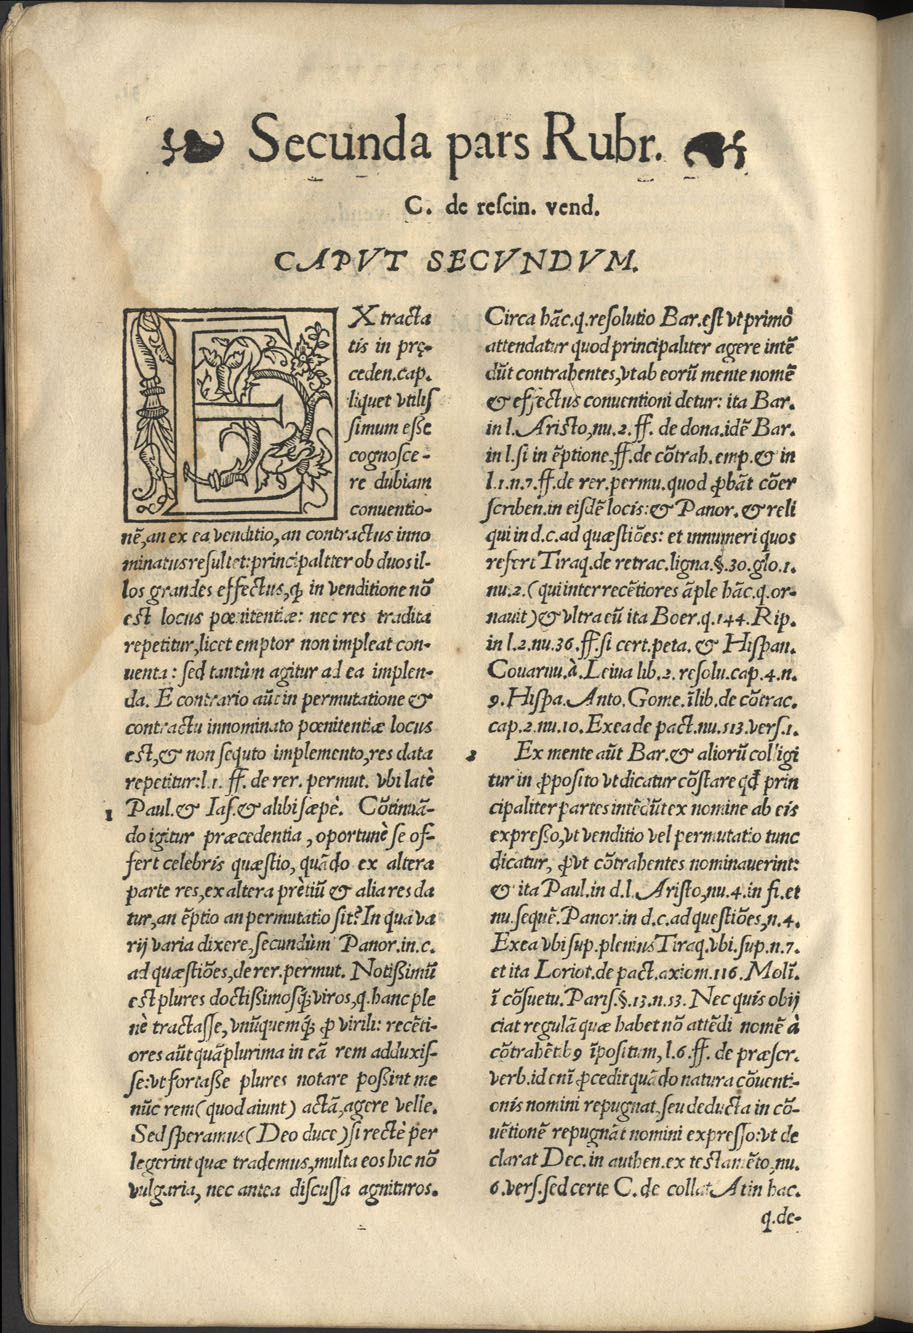 Secunda pars Rubr.
C. de reſcin. vend.
CAPVT SECVNDVM.
EX tracta
tis in prę-
ceden. cap.
liquet vtiliſ
ſimum eſſe
cognoſce-
re dubiam
conuentio-
nē, an ex ea venditio, an contractus inno
minatus reſultet: principaliter ob duos il-
los grandes effectus, ꝙ in venditione nō
est locus pœnitentiæ: nec res tradita
repetitur, licet emptor non impleat con-
uenta: ſed tantùm agitur ad ea implen-
da. E contrario aūt in permutatione &
contractu innominato pœnitentiæ locus
est, & non ſequto implemento, res data
repetitur: l. 1. ff. de rer. permut. vbi latè
1 Paul. & Iaſ. & alibi sæpè. Cōtinuā-
do igitur præcedentia, oportunè ſe of-
fert celebris quæſtio, quādo ex altera
parte res, ex altera prètiū & alia res da
tur, an ēptio an permutatio ſit? In qua va
rij varia dixere, ſecundùm Panor. in. c.
ad quæſtiōes, de rer. permut. Notiſſimū
est plures doctiſſimoſq́ꝫ viros, q. hanc ple
nè tractaſſe, vnūquemq́ꝫ ꝓ virili: recēti-
ores aūt quāplurima in eā rem adduxiſ-
ſe: vt fortaſſe plures notare poſſint me
nūc rem (quod aiunt) actā, agere velle.
Sed ſperamus (Deo duce) ſi rectè per
legerint quæ trademus, multa eos hic nō
vulgaria, nec antea diſcuſſa agnituros.
Circa hāc. q. reſolutio Bar. est vt primò
attendatur quod principaliter agere intē
dūt contrahentes, vt ab eorū mente nomē
& effectus conuentioni detur: ita Bar.
in l. Ariſto, nu. 2. ff. de dona. idē Bar.
in l. ſi in ēptione. ff. de cōtrah. emp. & in
l. 1. n. 7. ff. de rer. permu. quod ꝓbāt cōer
ſcriben. in eiſdē locis: & Panor. & reli
qui in d. c. ad quæſtiōes: et innumeri quos
refert Tiraq. de retrac. ligna. §. 30. glo. 1.
nu. 2. (qui inter recētiores āple hāc. q. or-
nauit) & vltra eū ita Boer. q. 144. Rip.
in l. 2. nu. 36. ff. ſi cert. peta. & Hiſpan.
Couarru. à. Leiua lib. 2. reſolu. cap. 4. n.
9. Hiſpa. Anto. Gome. ī lib. de cōtrac.
cap. 2. nu. 10. Exea de pact. nu. 113. verſ. 1.
2 Ex mente aūt Bar. & aliorū colligi
tur in ꝓpoſito vt dicatur cōſtare qđ prin
cipaliter partes intēdūt ex nomine ab eis
expreſſo, vt venditio vel permutatio tunc
dicatur, ꝓut cōtrahentes nominauerint:
& ita Paul. in d. l. Ariſto, nu. 4. in fi. et
nu. ſequē. Panor. in d. c. ad queſtiōes, n. 4.
Exea vbi ſup. plenius Tiraq. vbi. ſup. n. 7.
et ita Loriot. de pact. axiom. 116. Molī.
ī cōſuetu. Pariſ. §. 13. n. 53. Nec quis obij
ciat regulā quæ habet nō attēdi nomē à
cōtrahētib9 īpoſitum, l. 6. ff. de præſcr.
verb. id enī ꝓcedit quādo natura cōuenti-
onis nomini repugnat, ſeu deducta in cō-
uētionē repugnāt nomini expreſſo: vt de
clarat Dec. in authen. ex teſtamēto, nu.
6. verſ. ſed certe C. de collat. At in hac.
q. de-